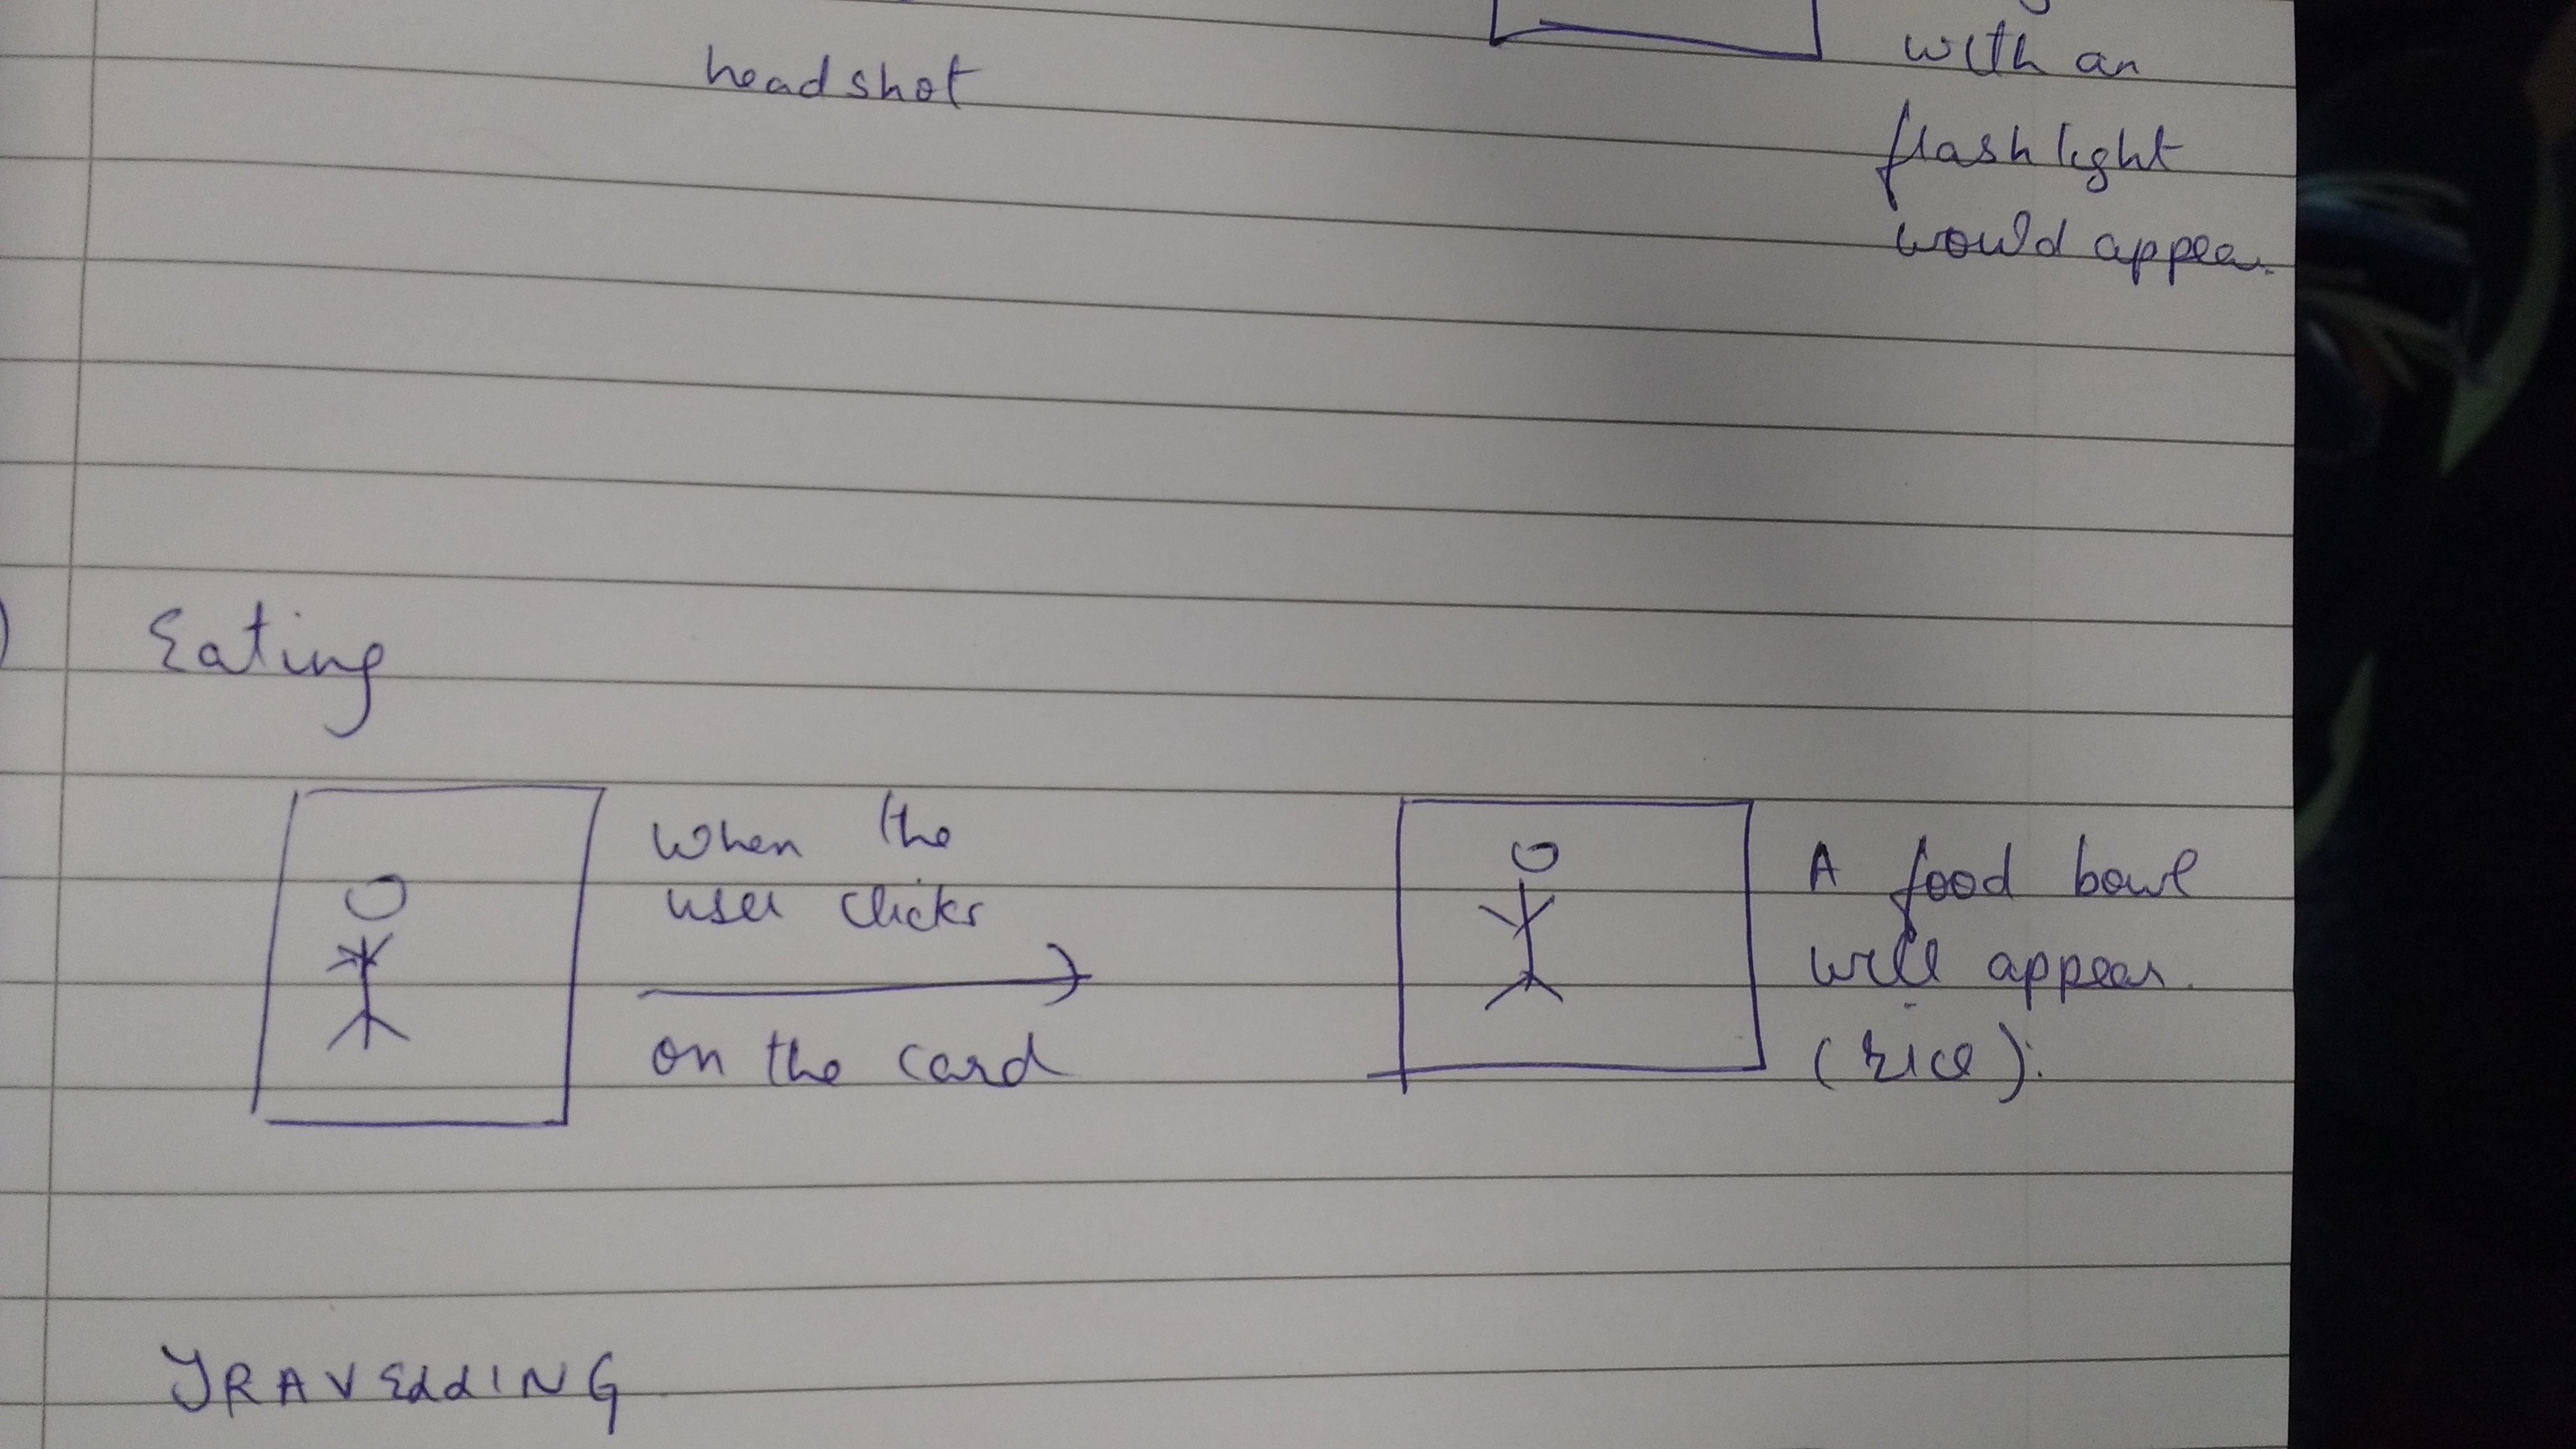 headshot
with an
flashlight
would appear.
Eating
When the
user clicks
on the card
A food bowl
will appear.
(rice).
TRAVELLING